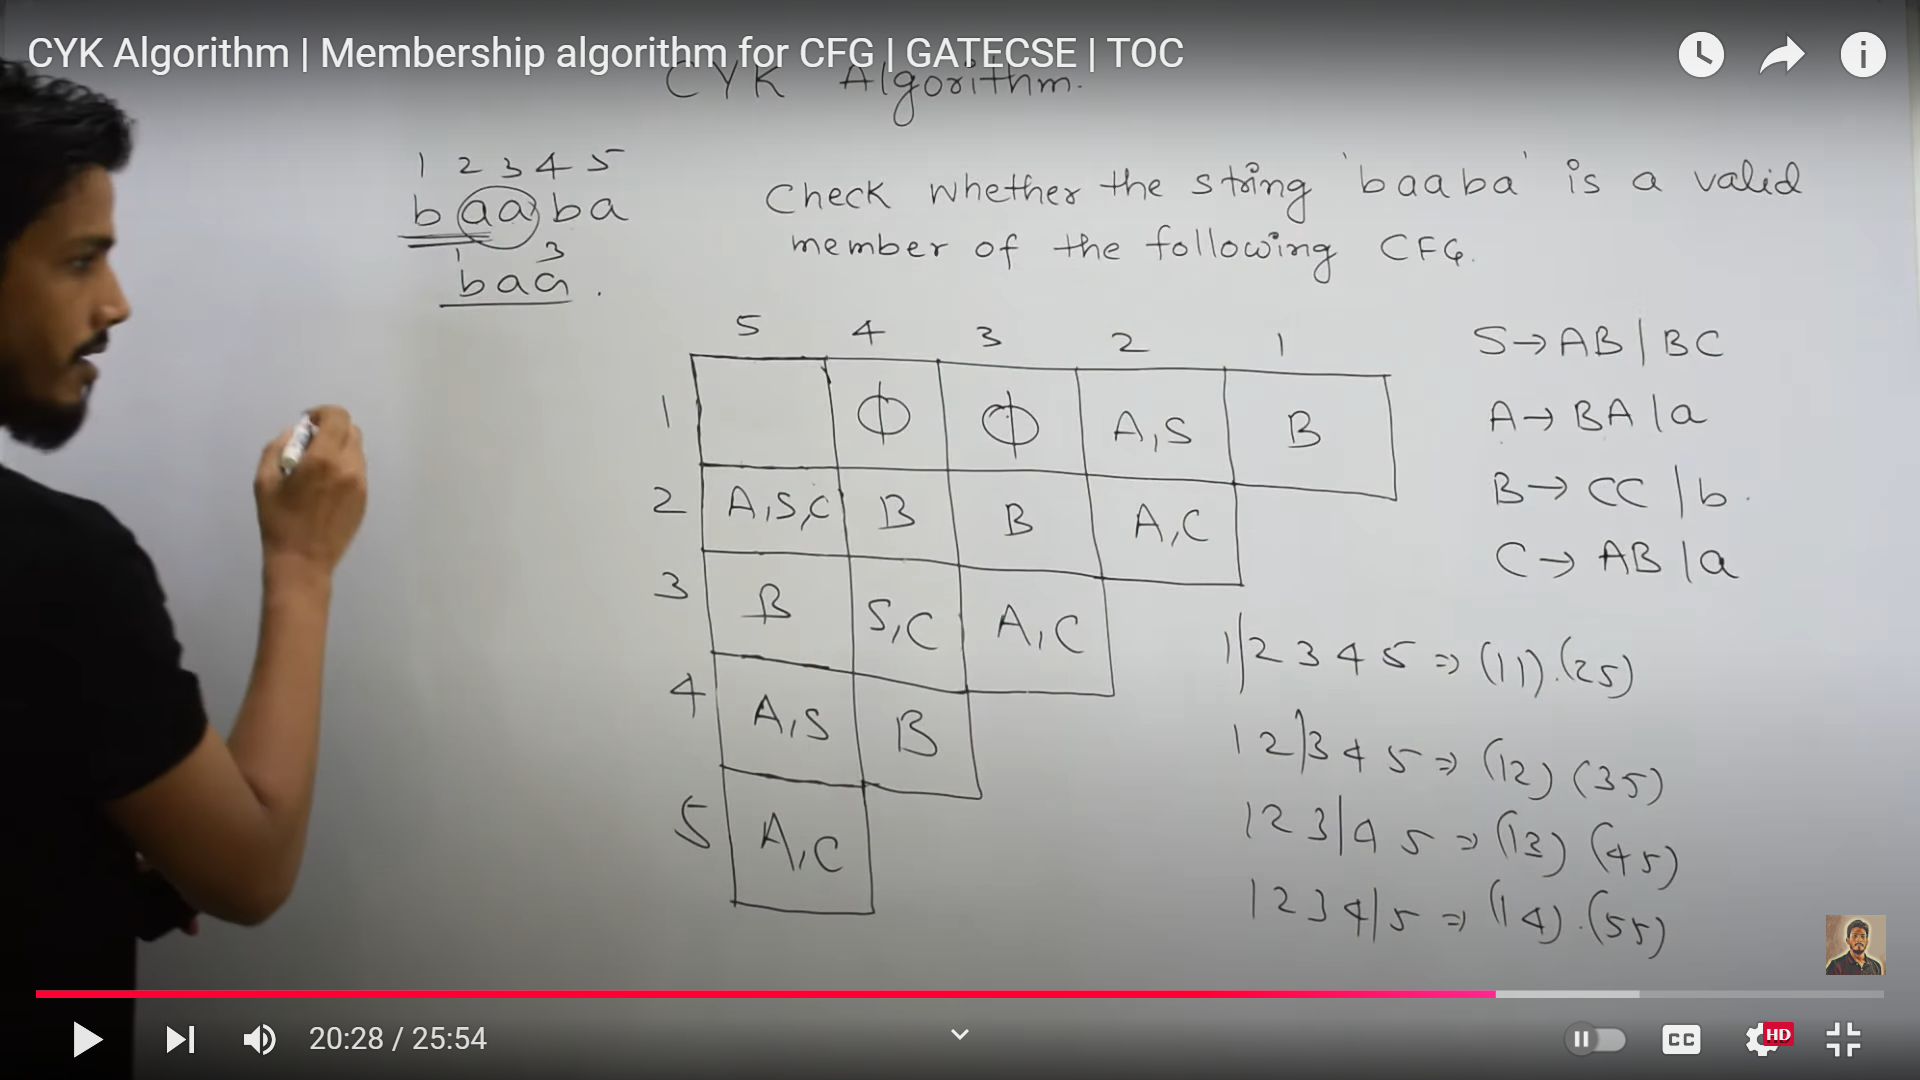 CYK Algorithm | Membership algorithm for CFG | GATECSE | TOC
CYK Algorithm.
1 2 3 4 5
b aa ba
1 3
baa .
Check whether the string 'baaba' is a valid
member of the following CFG.
5 4 3 2 1
1 Φ Φ A,S B
2 A,S,C B B A,C
3 B S,C A,C
4 A,S B
5 A,C
S→AB|BC
A→BA|a
B→CC|b.
C→AB|a
1|2 3 4 5 ⇒ (11).(25)
1 2|3 4 5 ⇒ (12) (35)
1 2 3|4 5 ⇒ (13) (45)
1 2 3 4|5 ⇒ (14).(55)
20:28 / 25:54
CC
HD